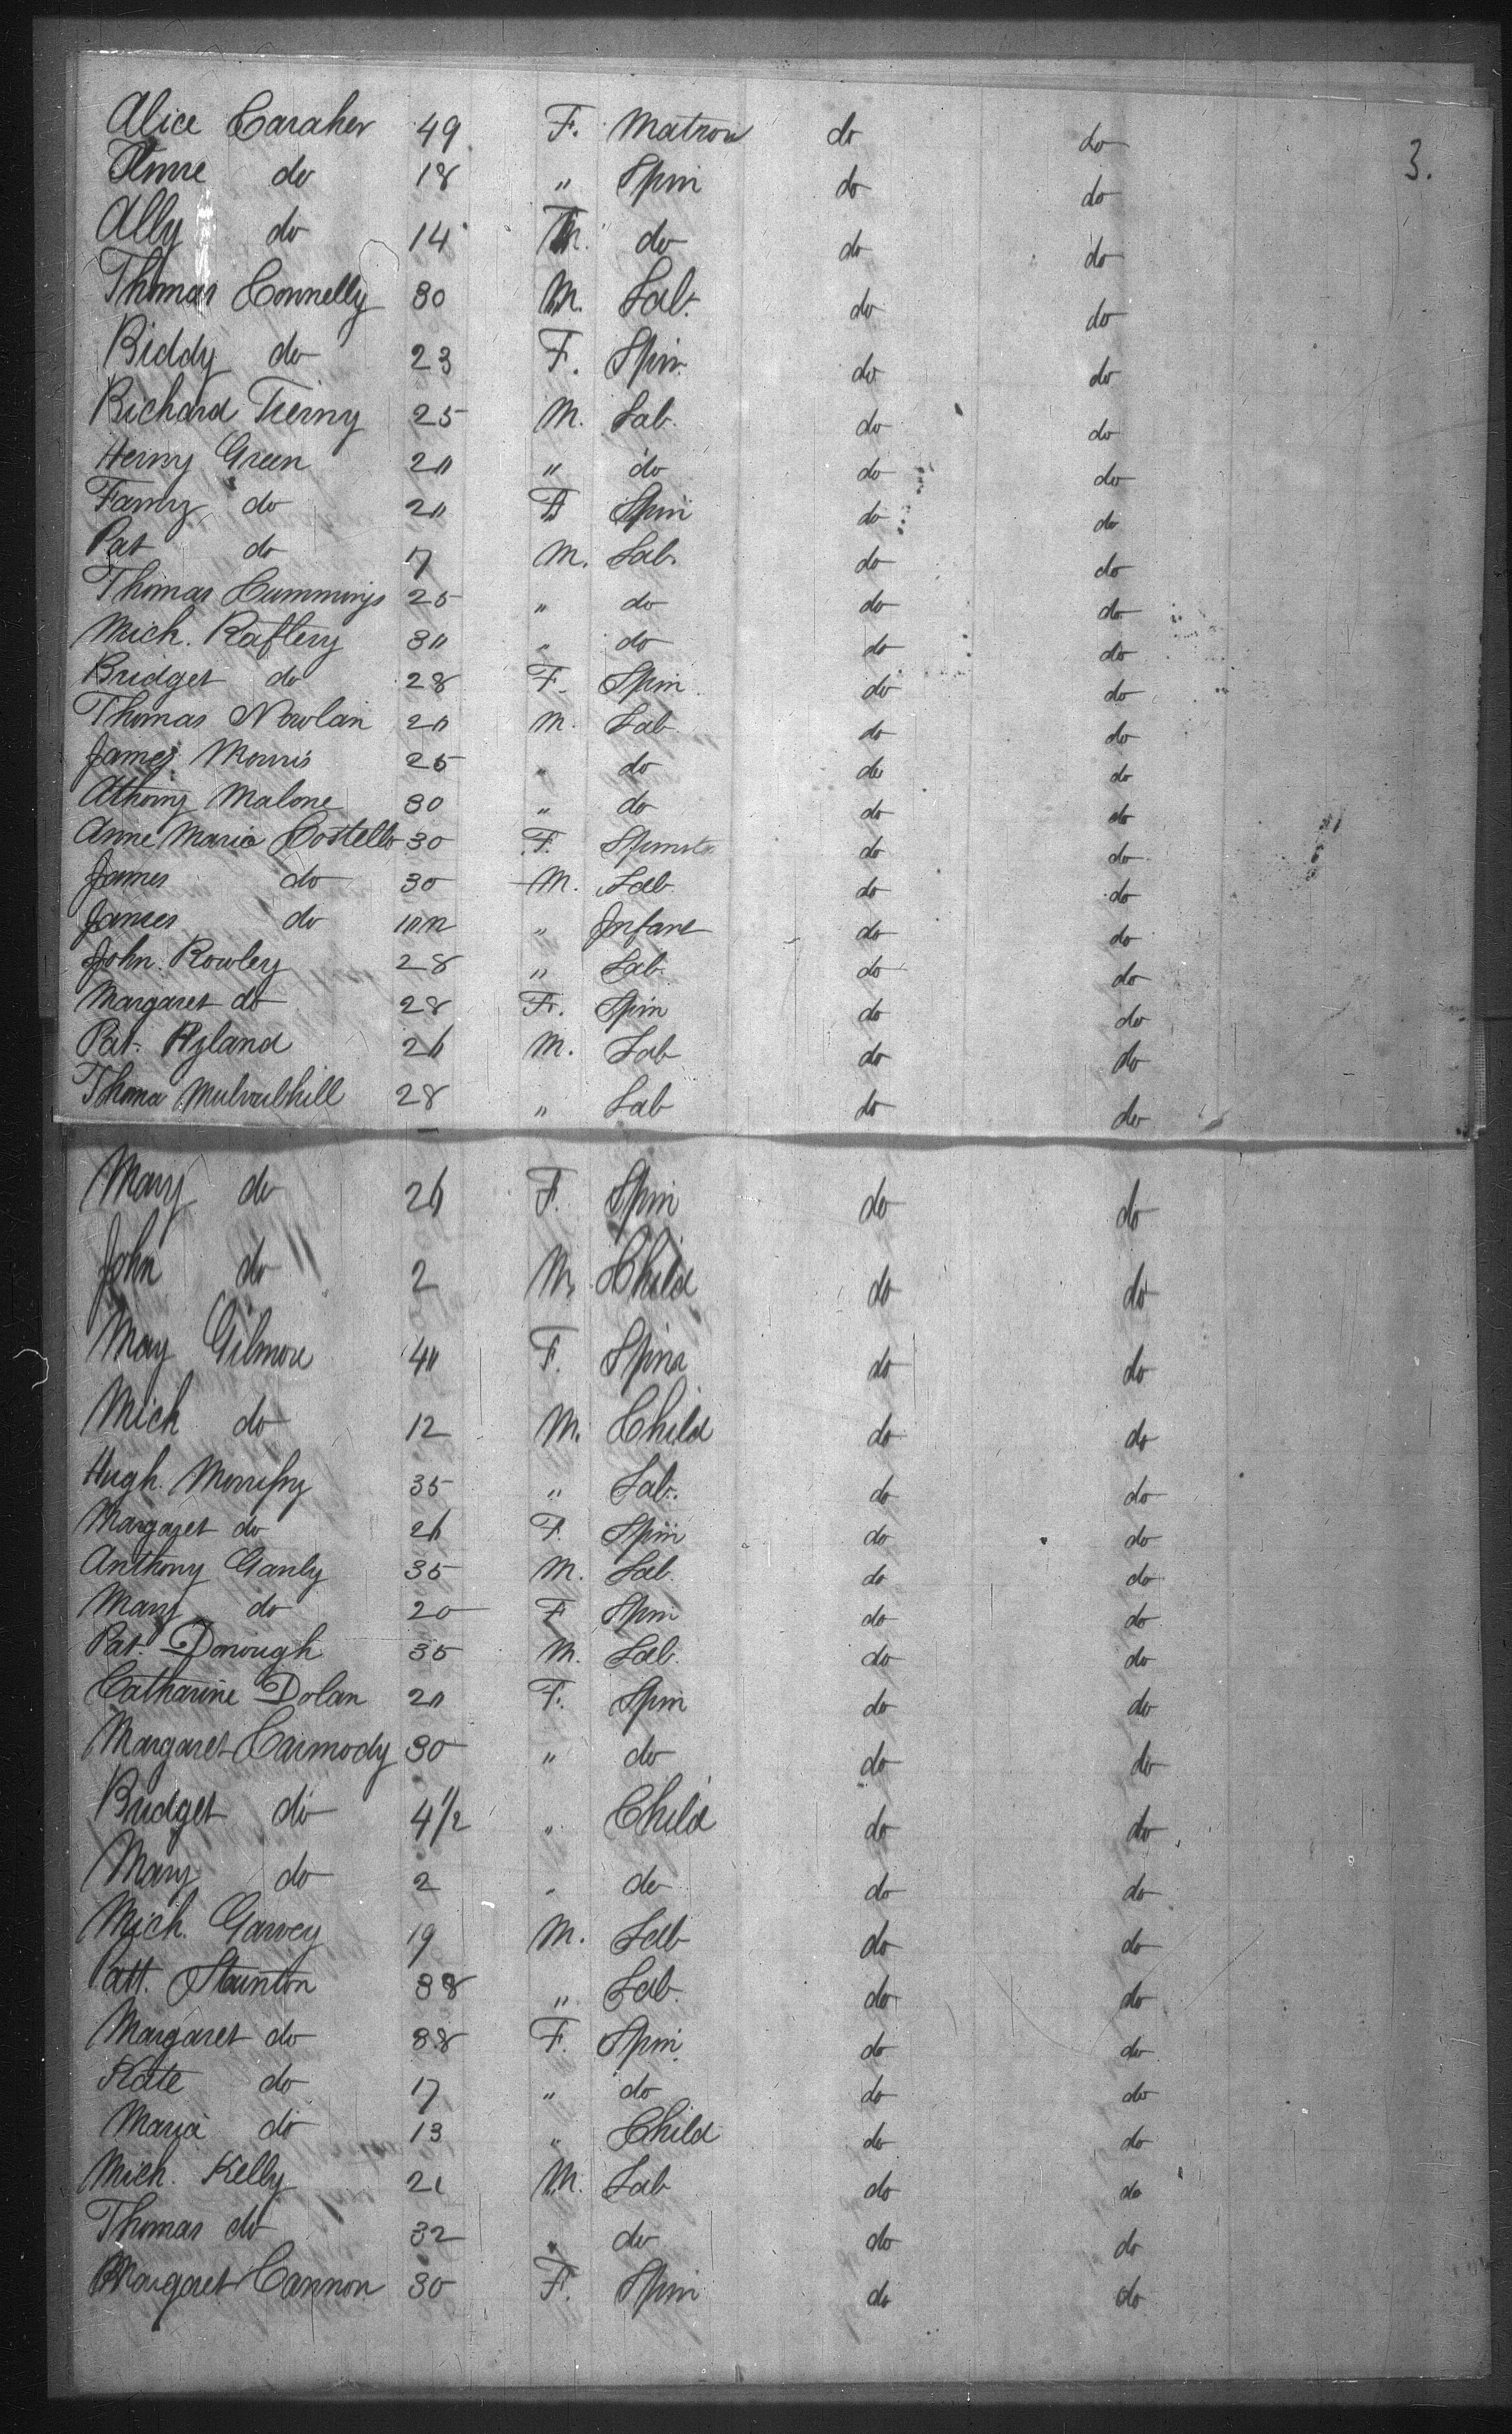 Alice Caraher 49 F. Matron do do 3.
Anne do 18 " Spin do do
Ally do 14 do do do
Thomas Connelly 30 M. Lab. do do
Biddy do 23 F. Spin. do do
Richard Tierny 25 M. Lab. do do
Henry Green 20 " do do do
Fanny do 20 F Spin do do
Pat do 17 M. Lab. do do
Thomas Cummings 25 " do do do
Mich. Raftery 30 " do do do
Bridget do 28 F. Spin do do
Thomas Nowlan 20 M. Lab do do
James Morris 25 " do do do
Athony Malone 30 " do do do
Anne Maria Costello 30 F. Spinster do do
James do 30 M. Lab do do
James do " Infant do do
John Rowley 28 " Lab. do do
Margaret do 28 F. Spin do do
Pat. Hyland 26 M. Lab do do
Thoma Mulvailhill 28 " Lab do do
Mary do 26 F. Spin do do
John do 2 M. Child do do
May Gilmore 40 F. Spins do do
Mich do 12 M. Child do do
Hugh 35 " Lab. do do
Margaret do 26 F. Spin do do
Anthony Ganly 35 M. Lab. do do
Mary do 20 F Spin do do
Pat. Donough 35 M. Lab. do do
Catharine Dolan 20 F. Spin do do
Margaret Carmody 30 " do do do
Bridget do 4 1/2 " Child do do
Mary do 2 " do do do
Mich. Garvey 19 M. Lab do do
Patt. Stainton 38 " Lab. do do
Margaret do 38 F. Spin do do
Kate do 17 " do do do
Maria do 13 " Child do do
Mich. Kelly 21 M. Lab do do
Thomas do 32 " do do do
Margaret Cannon 30 F. Spin do do